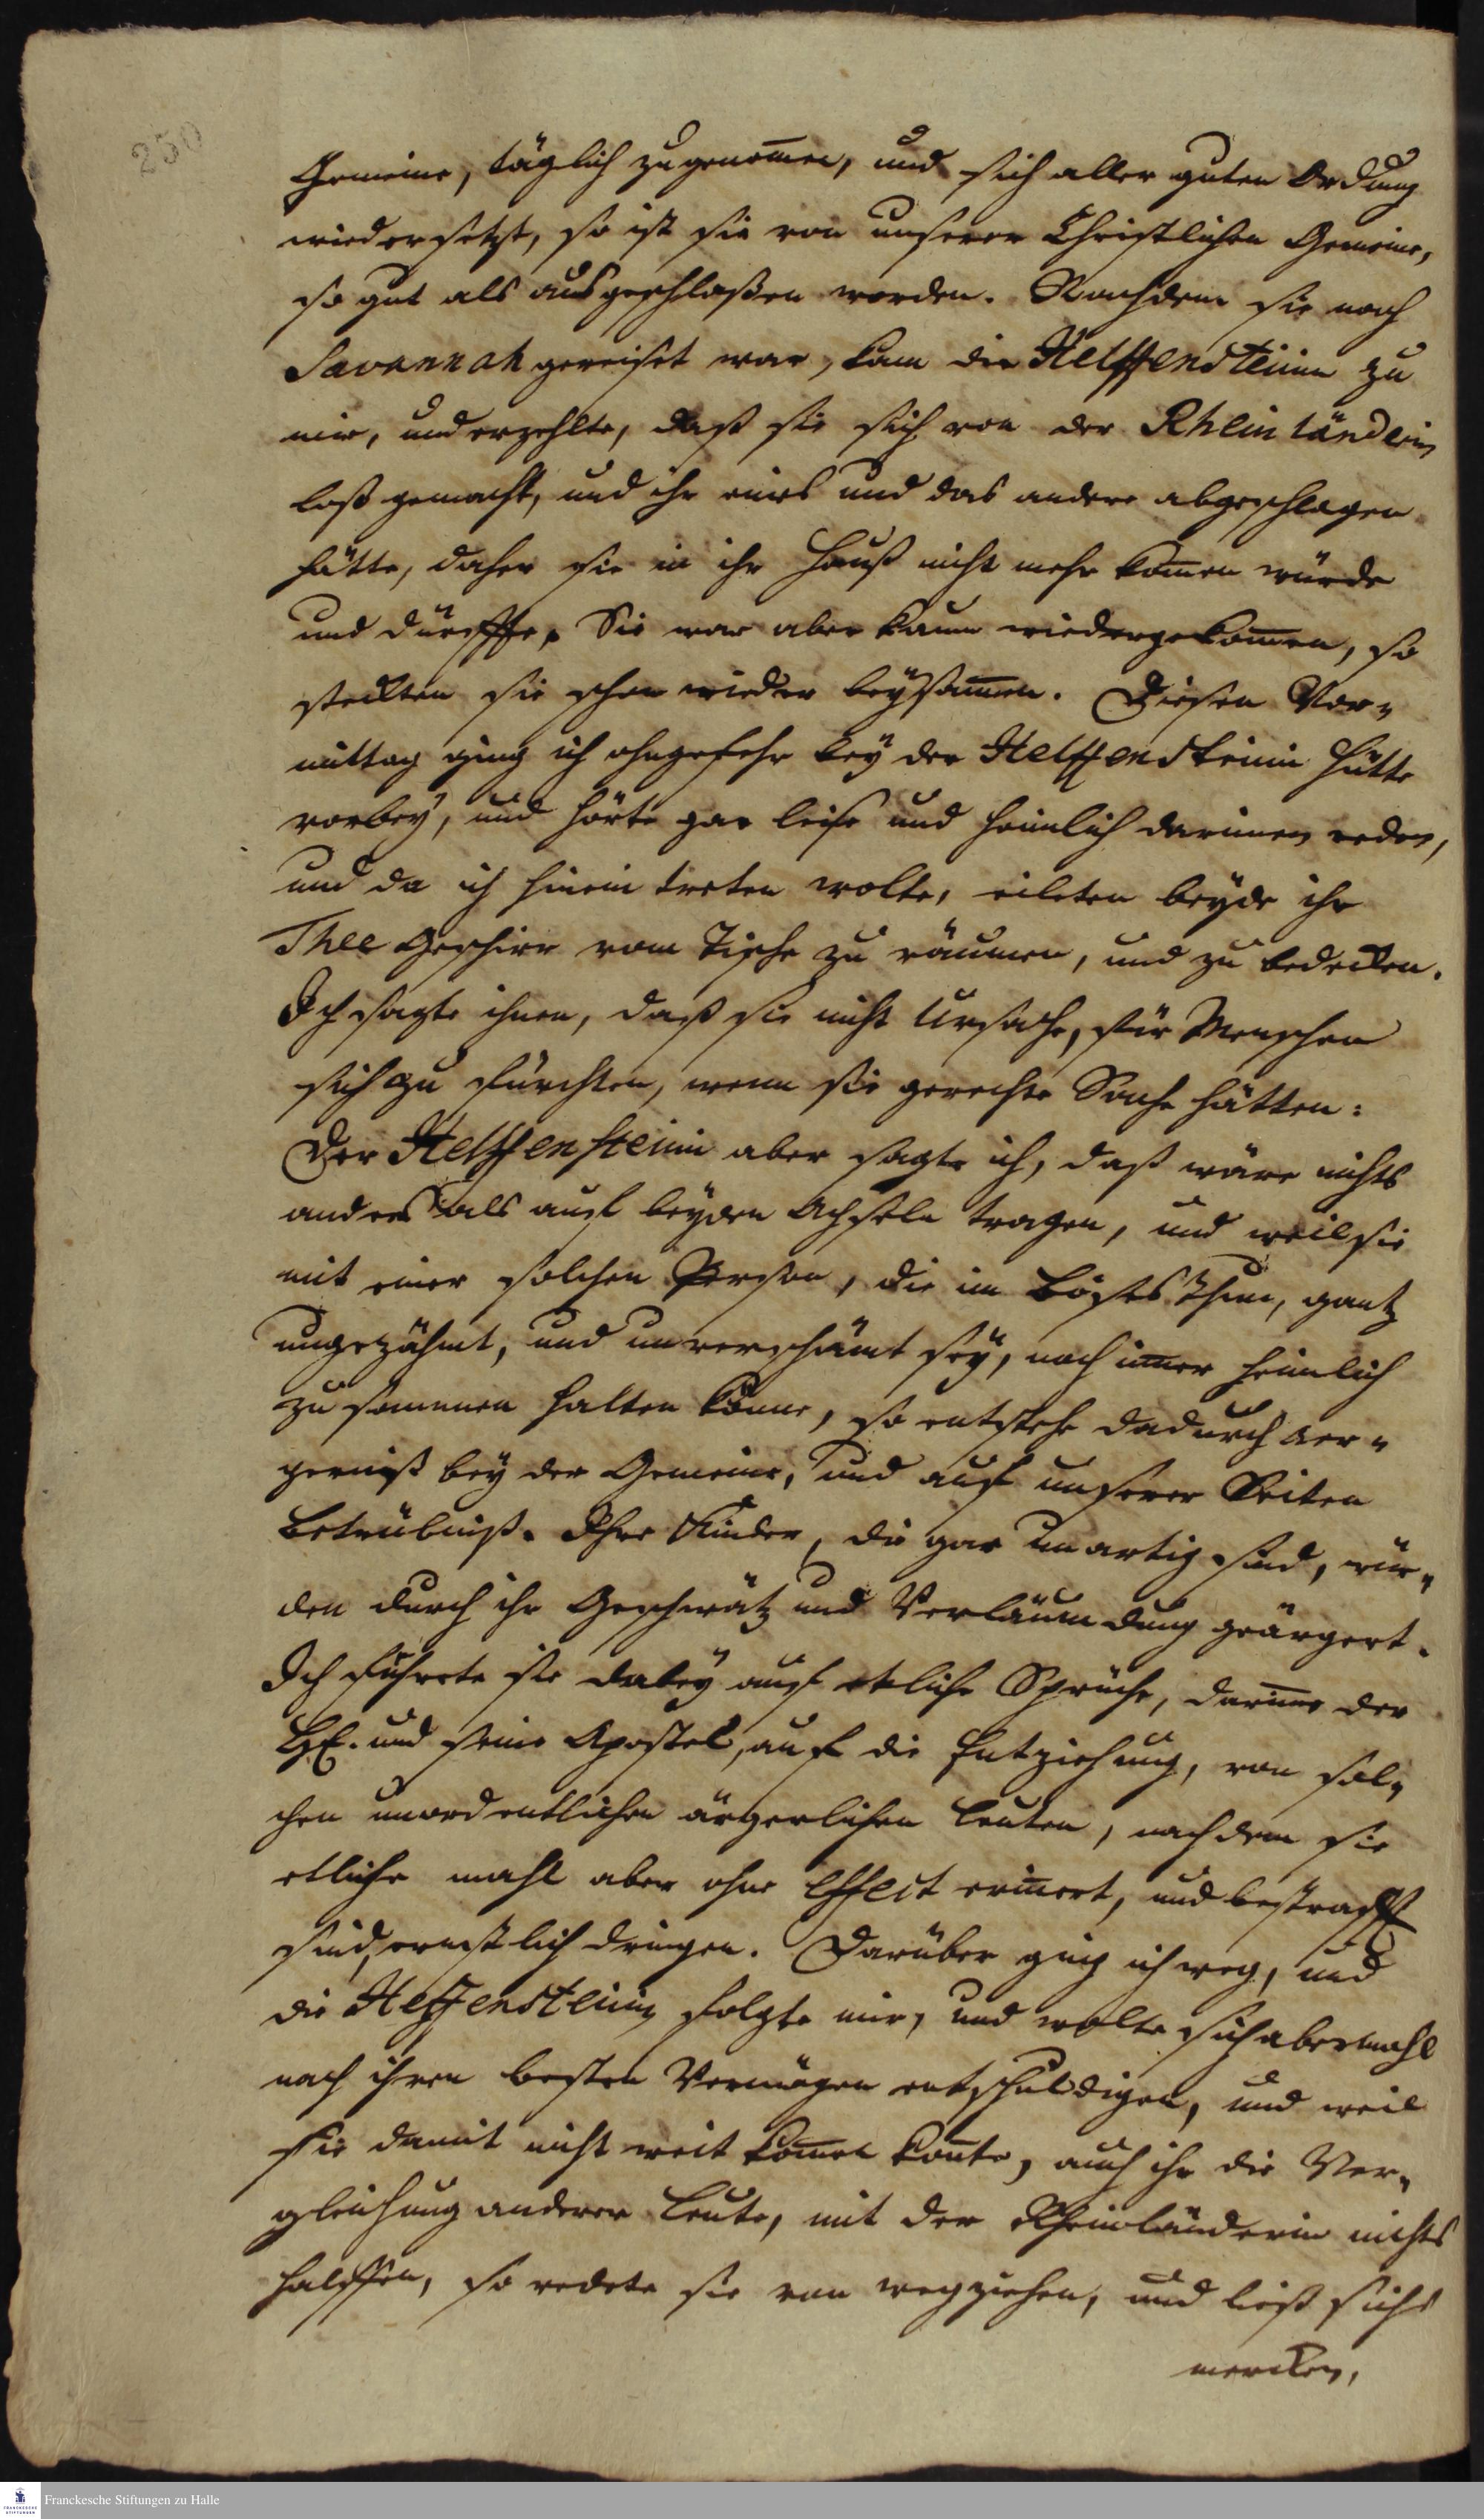 250
Gemeine, täglich zugenom̄en, und sich aller guten Ordnung
wiedersetzt, so ist sie von unserer Christlichen Gemeine,
so gut als ausgeschloßen worden. Nachdem sie nach
Savannah gereiset war, kam die Helffensteinin zu
mir, und erzehlte, daß sie sich von der Rheinländerin
loß gemacht, und ihr eines und das andere abgeschlagen
hätte, daher sie in ihr Hauß nicht mehr kom̄en würde
und dürffe. Sie war aber kaum wiedergekom̄en, so
steckten sie schon wieder beÿsam̄en. Diesen Vor-
mittag ging ich ohngefehr beÿ der Helffensteinin Hütte
vorbeÿ, und hörte gar leise und heimlich darinnen reden,
und da ich hinein treten wolte, eileten beÿde ihr
Thee Geschirr vom Tische zu räumen, und zu bedecken.
Ich sagte ihnen, daß sie nicht Ursache, für Menschen
sich zu fürchten, wenn sie gerechte Sache hätten:
Der Helffensteinin aber sagte ich, daß wäre nichts
anders als auf beÿden Achseln tragen, und weil sie
mit einer solchen Person, die im Böses Thun, gantz
ungezähmt, und unverschämt seÿ, noch im̄er heimlich
zusammen halten könne, so entstehe dadurch Aer-
gerniß beÿ der Gemeine, und auf unserer Seiten
Betrübniß. Ihre Kinder, die gar unartig sind, wür-
den durch ihr Geschwätz und Verläumdung geärgert.
Ich führete sie dabeÿ auf etliche Sprüche, darin̄en der
HE. und seine Apostel, auf die Entziehung, von sol-
chen unordentlichen ärgerlichen Leuten, nachdem sie
etliche mahl aber ohne Effect erin̄ert, und bestrafft
sind, ernstlich dringen. Darüber ging ich weg, und
die Helffensteinin folgte mir, und wolte sich abermahl
nach ihren besten Vermögen entschuldigen, und weil
sie damit nicht weit kom̄en kon̄te, auch ihr die Ver-
gleichung anderer Leute, mit der Rheinländerin nichts
halffen, so redete sie von wegziehen, und ließ sichs
mercken,
Franckesche Stiftungen zu Halle